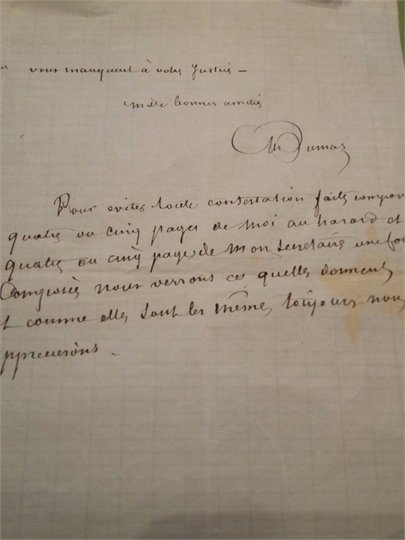 vous manquent à votre Justin –
mille bonnes amitiés
Al Dumas
Pour eviter toute contestation faites compos
quatre ou cinq pages de moi au hazard et
quatre ou cinq pages de mon secretaire une foi
Composées nous verrons ce quelles donnent
et comme elles sont les même toujours nou
apprecierons.